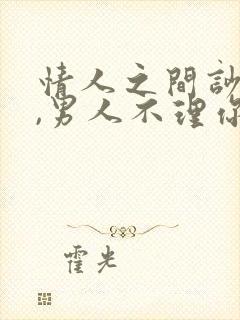 情人之間訬
,男人不理你
霍光